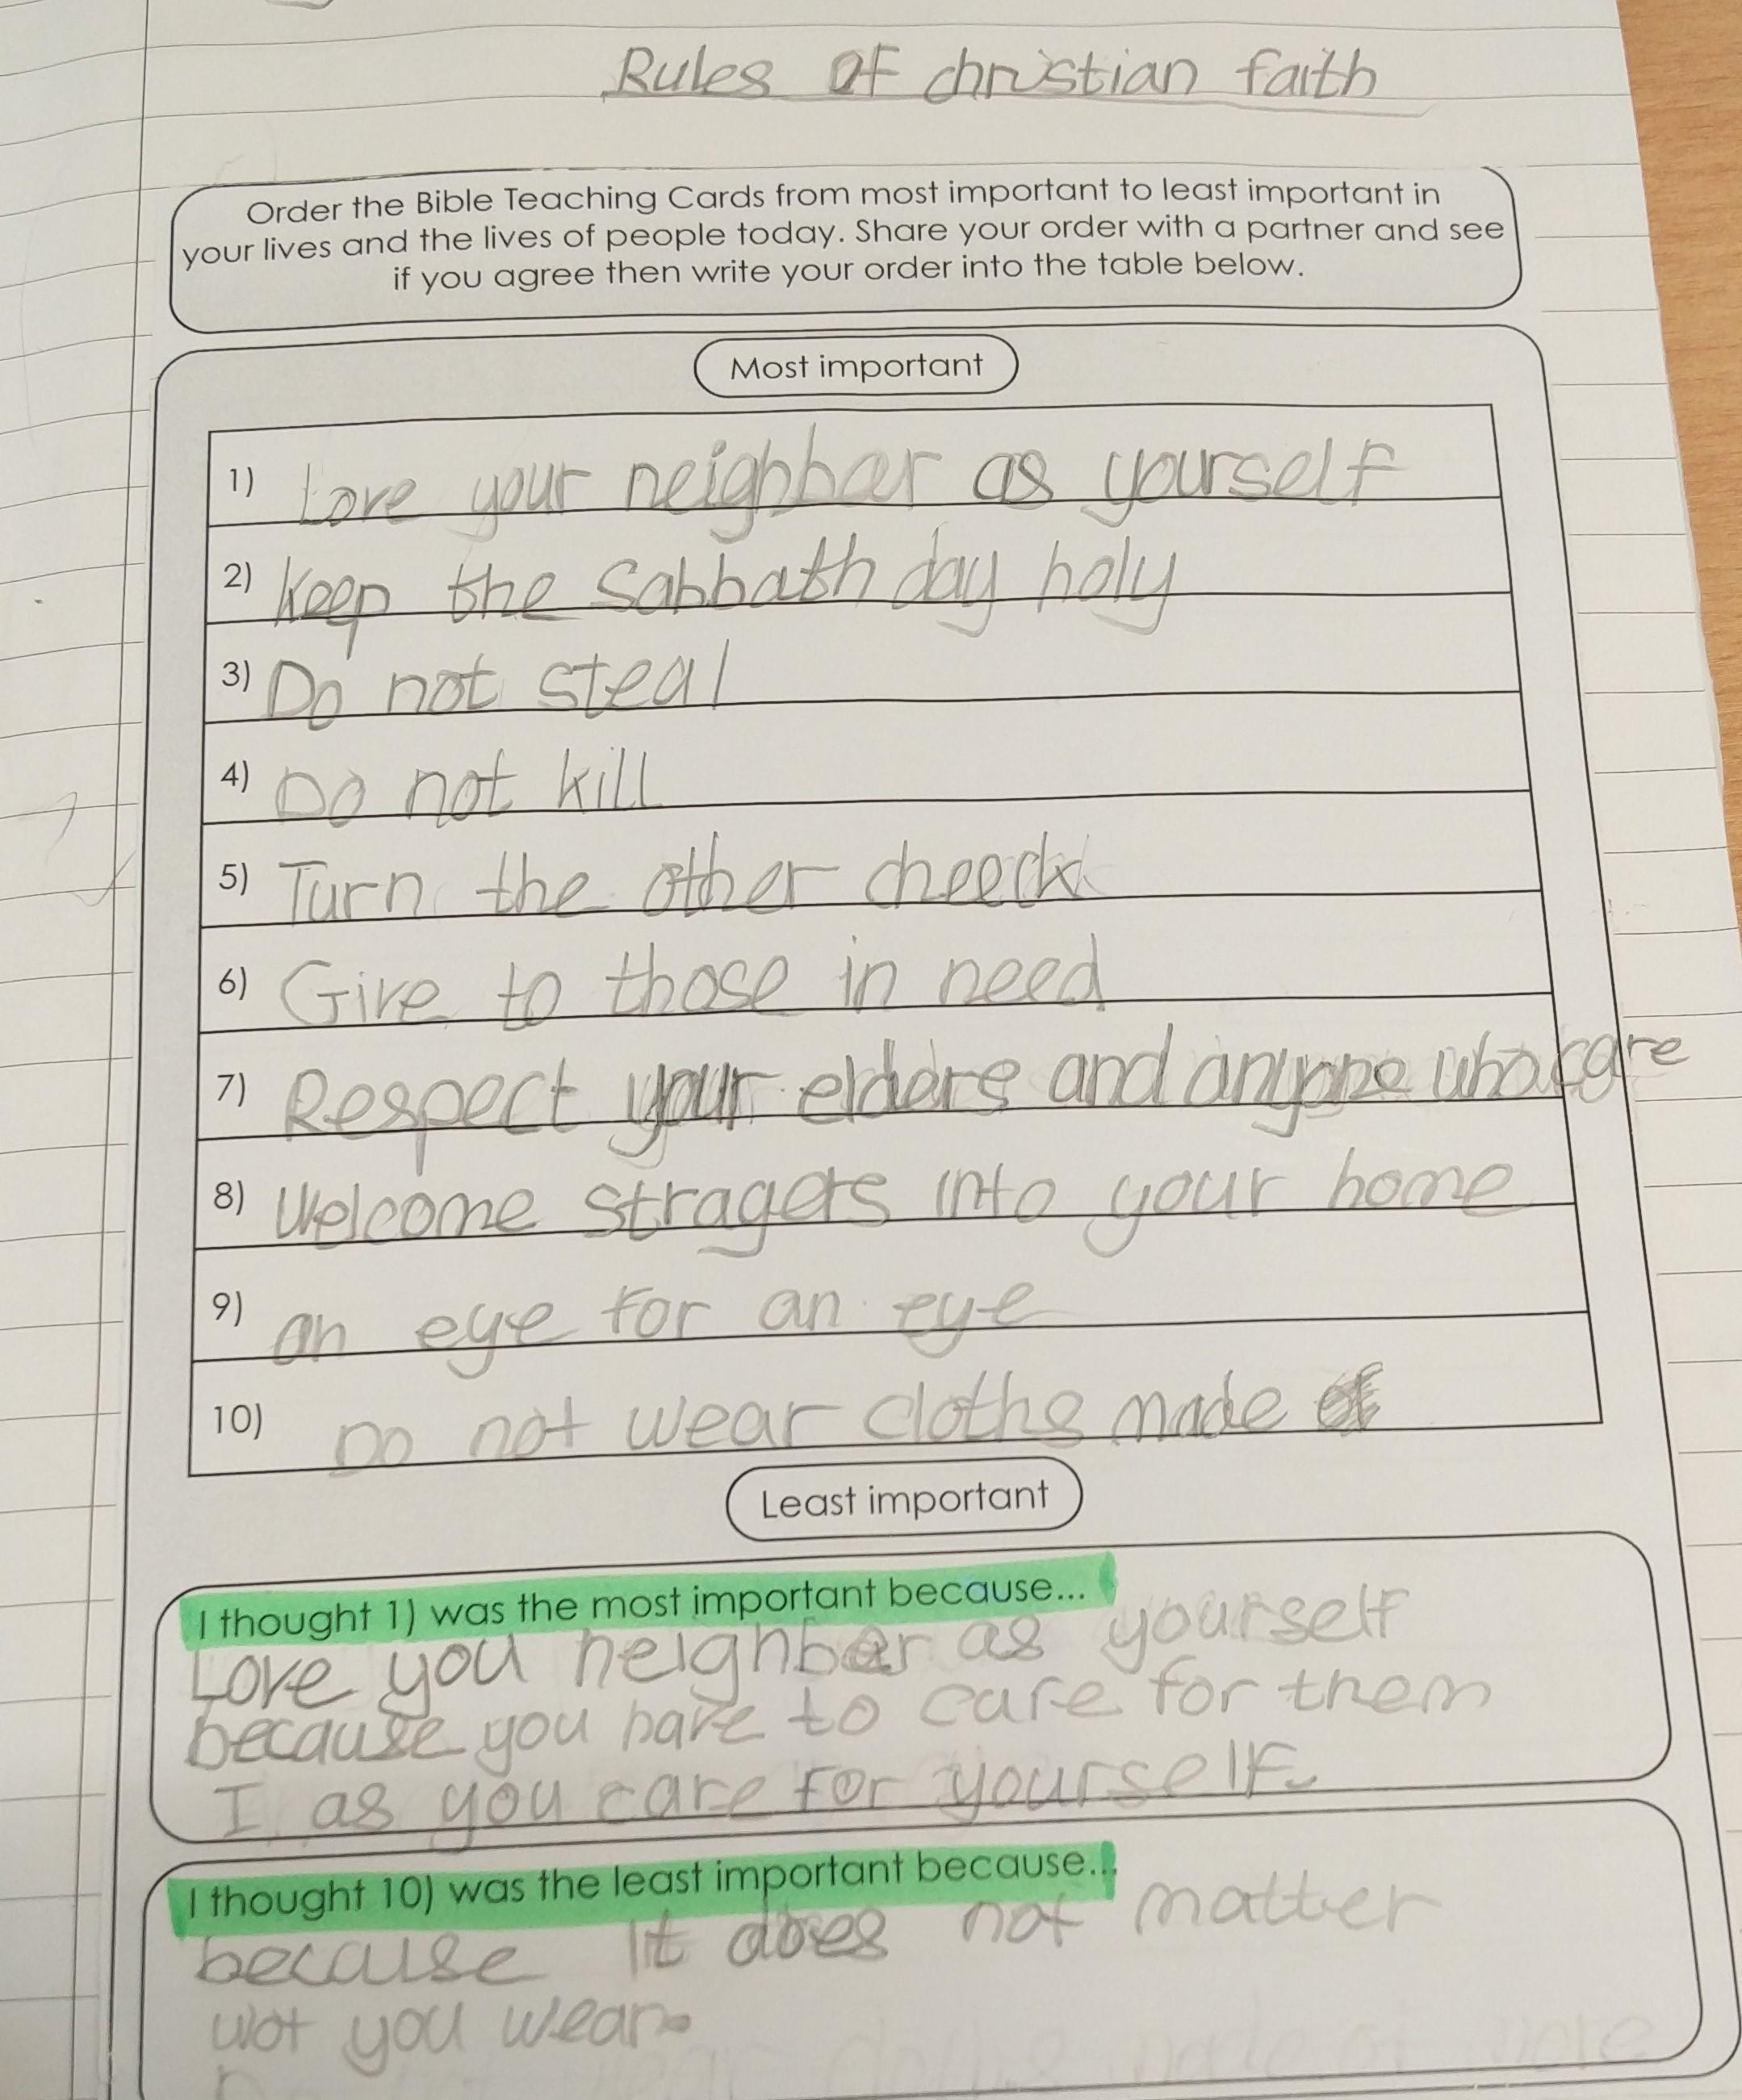 Rules OF christian faith
Order the Bible Teaching Cards from most important to least important in
your lives and the lives of people today. Share your order with a partner and see
if you agree then write your order into the table below.
Most important
1) Love your neighbor as yourself
2) Keep the Sabbath day holy
3) Do not steal
4) Do not kill
5) Turn the other cheeck
6) Give to those in need
7) Respect your elders and anyone who care
8) Welcome stragers into your home
9) an eye for an eye
10) Do not wear cloths made of
Least important
I thought 1) was the most important because...
Love you neighbor as yourself
because you have to care for them
I as you care for yourself.
I thought 10) was the least important because...
because it does not matter
wot you wear.